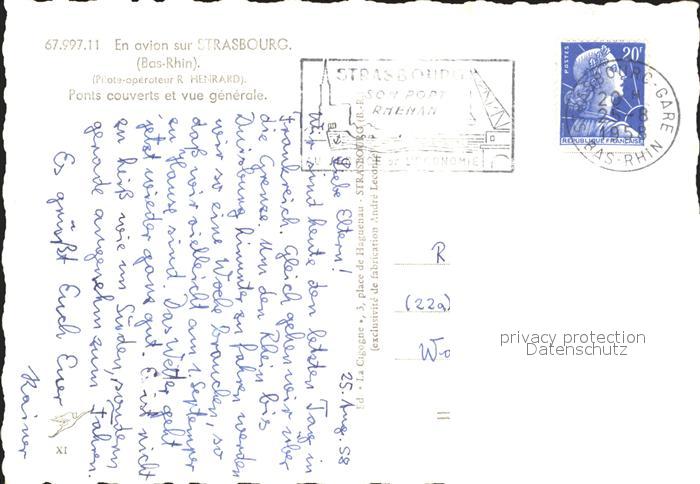 67.997.11 En avion sur STRASBOURG.
(Bas-Rhin).
(Pilote-opérateur R. HENRARD).
Ponts couverts et vue générale.
STRASBOURG
SON PORT
RHENAN
DE L'ECONOMIE
POSTES
20F
REPUBLIQUE FRANÇAISE
STRASBOURG-GARE
20 H
1958
BAS-RHIN
Ed. "La Cigogne", 3, place de Haguenau - STRASBOURG (B.-R.)
(exclusivité de fabrication André Leconte)
25. Aug. 58
Liebe Eltern!
Wir sind heute den letzten Tag in
Frankreich. Gleich gehen wir über
die Grenze. Um den Rhein bis
Duisburg hinunter zu fahren werden
wir so eine Woche brauchen, so
daß wir vielleicht am 1. September
zu Hause sind. Das Wetter geht
jetzt wieder ganz gut. Es ist nicht
zu heiß wie im Süden, sondern
gerade angenehm zum Fahren.
Es grüßt Euch Euer
Rainer
XI
R
(22a)
Wo
privacy protection
Datenschutz